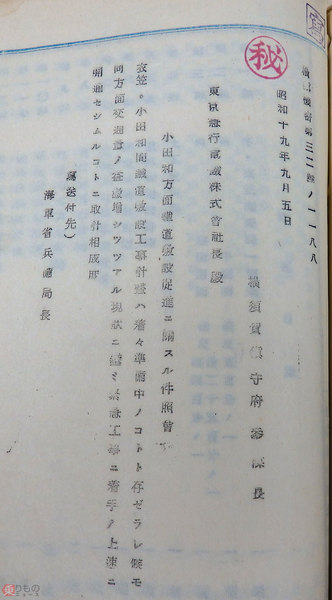 寫
秘
横鎮機密第三二號ノ一一八八
昭和十九年九月五日
横須賀鎮守府参謀長
東京急行電鐵株式會社長殿
小田和方面鐵道敷設促進ニ關スル件照會
衣笠。小田和間鐵道敷設工事計畫ハ着々準備中ノコトト存ゼラレ候モ
同方面交通量ノ逐激増シツツアル現狀ニ鑑ミ緊急工事ニ着手ノ上速ニ
開通セシムルコトニ取計相成度
寫送付先)
海軍省兵備局長
乗りもの
ニュース